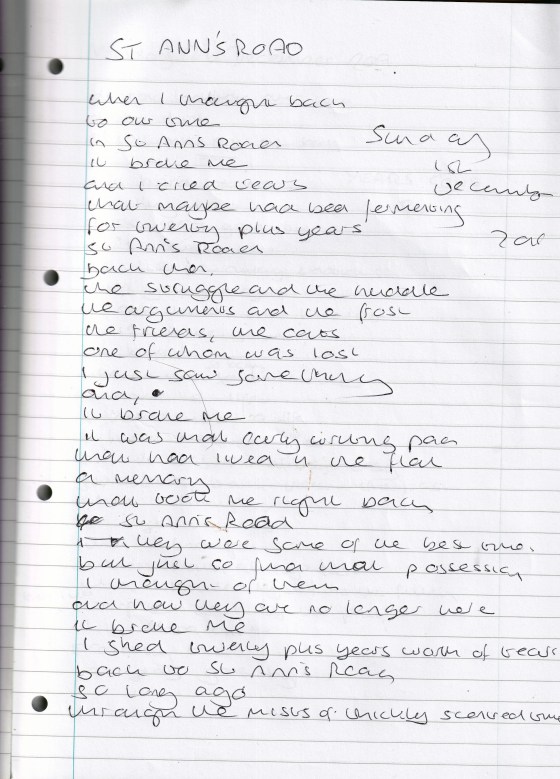 ST ANN'S ROAD
when I thought back
to our time
in St Ann's Road
Sunday
it broke me
1st
and I cried tears
December
that maybe had been fermenting
for twenty plus years
St Ann's Road
back then,
the struggle and the huddle
the arguments and the frost
the friends, the cats
one of whom was lost
I just saw something
and,
it broke me
it was that early writing pad
that had lived in the flat
a memory
that took me right back
to St Ann's Road
they were some of the best times.
but just to find that possession
I thought of them
and how they are no longer here
it broke me
I shed twenty plus years worth of tears
back to St Ann's Road
so long ago
through the mists of thickly scented time